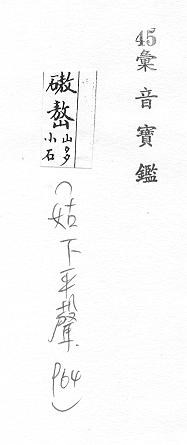 45彙音寶鑑
磝嶅山多小石
(姑下平聲 P64)